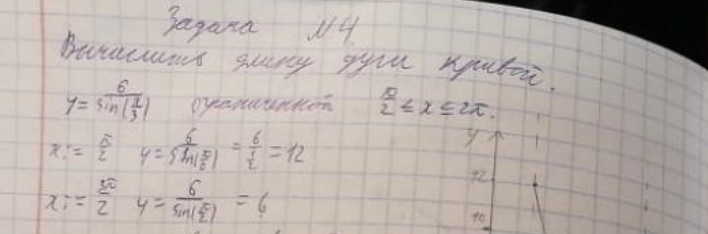 Задача №4
Вычислить длину дуги кривой.
y = 6/sin(x/3) ограниченной π/2 ≤ x ≤ 2π.
x := π/2 y = 6/sin(π/6) = 6/(1/2) = 12
x := 3π/2 y = 6/sin(π/2) = 6
y
12
10